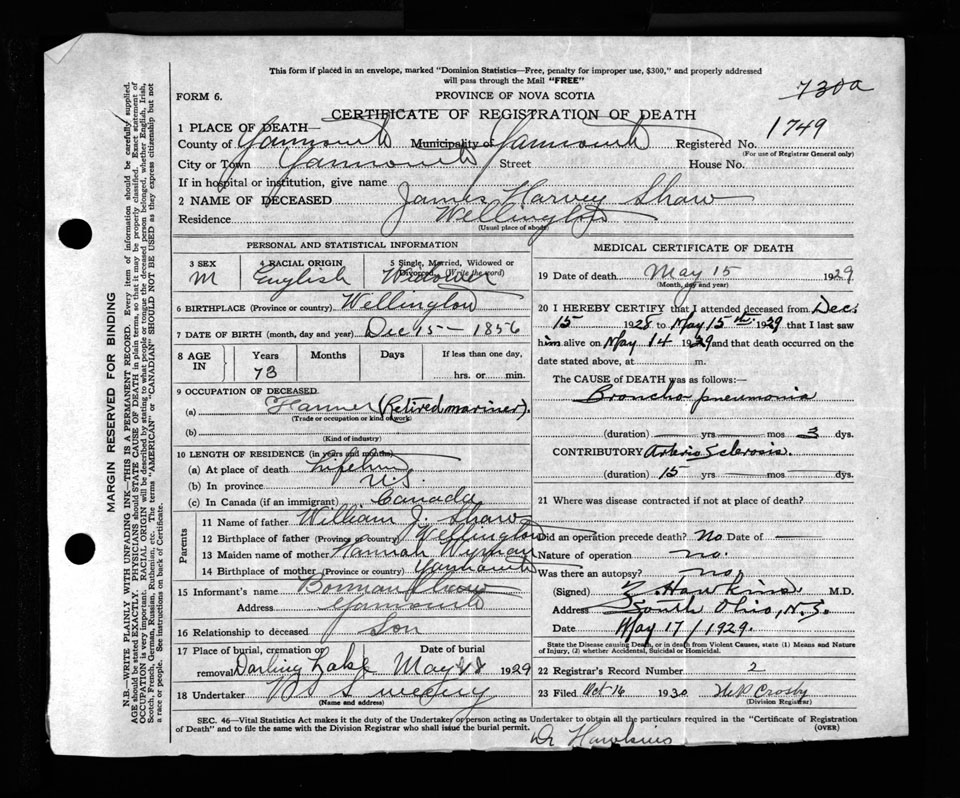 This form if placed in an envelope, marked "Dominion Statistics—Free, penalty for improper use, $300," and properly addressed
will pass through the Mail "FREE"
730a
FORM 6.
PROVINCE OF NOVA SCOTIA
CERTIFICATE OF REGISTRATION OF DEATH
1749
1 PLACE OF DEATH—
County of Yarmouth Municipality of Yarmouth Registered No.
(For use of Registrar General only)
City or Town Yarmouth Street House No.
If in hospital or institution, give name
2 NAME OF DECEASED James Harvey Shaw
Residence Wellington
(Usual place of abode)
PERSONAL AND STATISTICAL INFORMATION
3 SEX M
4 RACIAL ORIGIN English
5 Single, Married, Widowed or Divorced (Write the word) Widower
6 BIRTHPLACE (Province or country) Wellington
7 DATE OF BIRTH (month, day and year) Dec 15 — 1856
8 AGE IN Years Months Days If less than one day,
73 hrs. or min.
9 OCCUPATION OF DECEASED
(a) Farmer (Retired mariner).
(Trade or occupation or kind of work)
(b)
(Kind of industry)
10 LENGTH OF RESIDENCE (in years and months)
(a) At place of death Lifetime
(b) In province
(c) In Canada (if an immigrant) Canada
Parents
11 Name of father William J. Shaw
12 Birthplace of father (Province or country) Wellington
13 Maiden name of mother Hannah Wyman
14 Birthplace of mother (Province or country) Yarmouth
15 Informant's name Shaw
Address Yarmouth
16 Relationship to deceased Son
17 Place of burial, cremation or removal Darling Lake
Date of burial May 18 1929
18 Undertaker Sweeny
(Name and address)
MEDICAL CERTIFICATE OF DEATH
19 Date of death May 15 1929
(Month, day and year)
20 I HEREBY CERTIFY that I attended deceased from Dec.
15 1928 to May 15th 1929 that I last saw
him alive on May 14 1929 and that death occurred on the
date stated above, at m.
The CAUSE of DEATH was as follows:—
Broncho pneumonia
(duration) yrs mos 3 dys.
CONTRIBUTORY Arterio Sclerosis.
(duration) 15 yrs mos dys.
21 Where was disease contracted if not at place of death?
Did an operation precede death? No Date of —
Nature of operation no.
Was there an autopsy? no.
(Signed) Hawkins M.D.
Address South Ohio, N.S.
Date May 17/1929.
State the Disease causing Death, or in death from Violent Causes, state (1) Means and Nature
of Injury, (2) whether Accidental, Suicidal or Homicidal.
22 Registrar's Record Number 2
23 Filed Oct 16 1930 Crosby
(Division Registrar)
SEC. 46—Vital Statistics Act makes it the duty of the Undertaker or person acting as Undertaker to obtain all the particulars required in the "Certificate of Registration
of Death" and to file the same with the Division Registrar who shall issue the burial permit.
(OVER)
Dr Hawkins
MARGIN RESERVED FOR BINDING
N.B.—WRITE PLAINLY WITH UNFADING INK—THIS IS A PERMANENT RECORD. Every item of information should be carefully supplied.
AGE should be stated EXACTLY. PHYSICIANS should STATE CAUSE OF DEATH in plain terms, so that it may be properly classified. Exact statement of
OCCUPATION is very important. RACIAL ORIGIN will be described by stating to what people or tongue the deceased person belonged, whether English, Irish,
Scotch, French, German, Russian, Ruthenian, etc. The terms "AMERICAN" or "CANADIAN" SHOULD NOT BE USED as they express citizenship but not
a race or people. See instructions on back of Certificate.